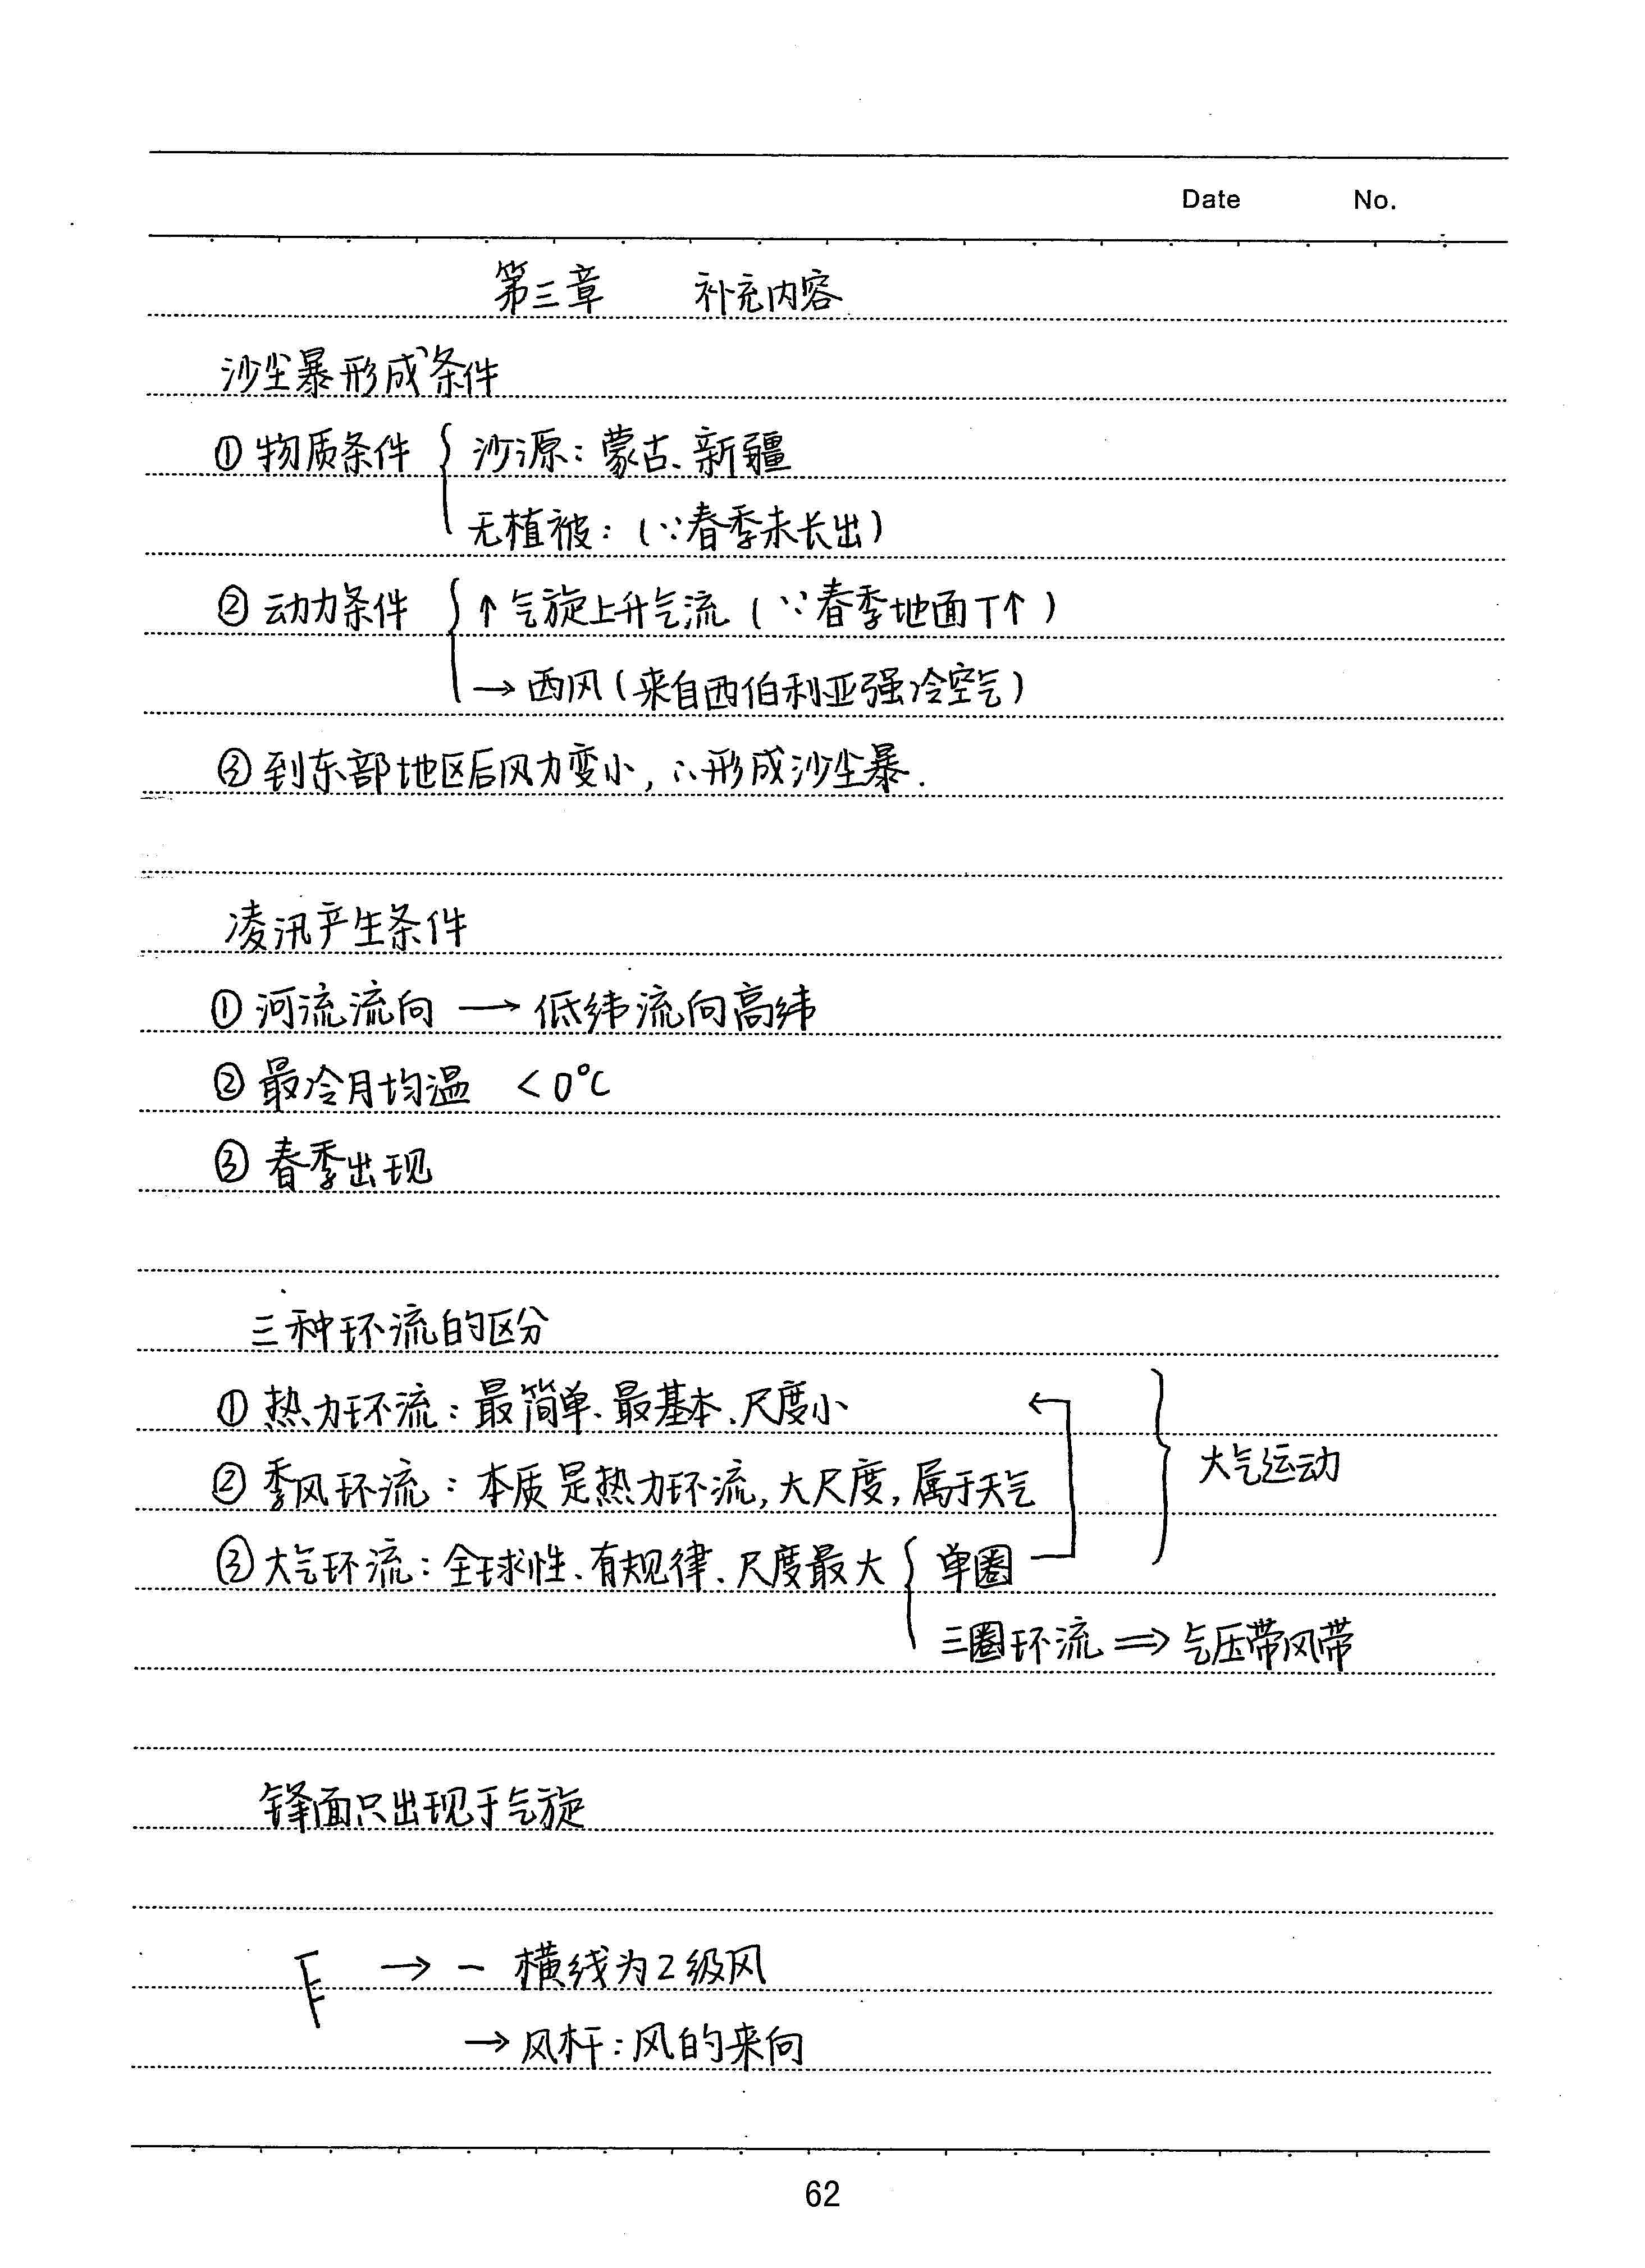 Date No.
第三章 补充内容
沙尘暴形成条件
①物质条件 { 沙源：蒙古、新疆
无植被：（∵春季未长出）
②动力条件 { ↑气旋上升气流（∵春季地面T↑）
→西风（来自西伯利亚强冷空气）
③到东部地区后风力变小，∴形成沙尘暴.
凌汛产生条件
①河流流向 → 低纬流向高纬
②最冷月均温 <0℃
③春季出现
三种环流的区分
①热力环流：最简单、最基本、尺度小
②季风环流：本质是热力环流，大尺度，属于天气 } 大气运动
③大气环流：全球性、有规律、尺度最大 { 单圈
三圈环流 ⇒ 气压带风带
锋面只出现于气旋
→ 一 横线为2级风
→风杆：风的来向
62